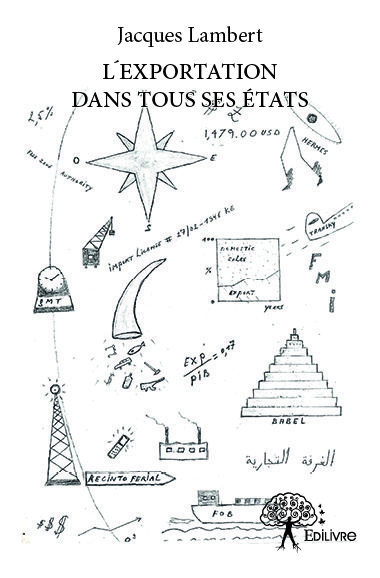 Jacques Lambert
L´EXPORTATION
DANS TOUS SES ÉTATS
2,5%
27
1,479.00 USD
HERMES
FREE ZONE AUTHORITY
O
E
S
IMPORT LICENCE
27/02-1346 KE
TRANSIT
100
%
0
DOMESTIC
SALES
EXPORT
YEARS
F
M
I
GMT
EXP
PIB
= 0,17
BABEL
الغرفة التجارية
RECINTO FERIAL
$$$
0
FOB
EDILIVRE